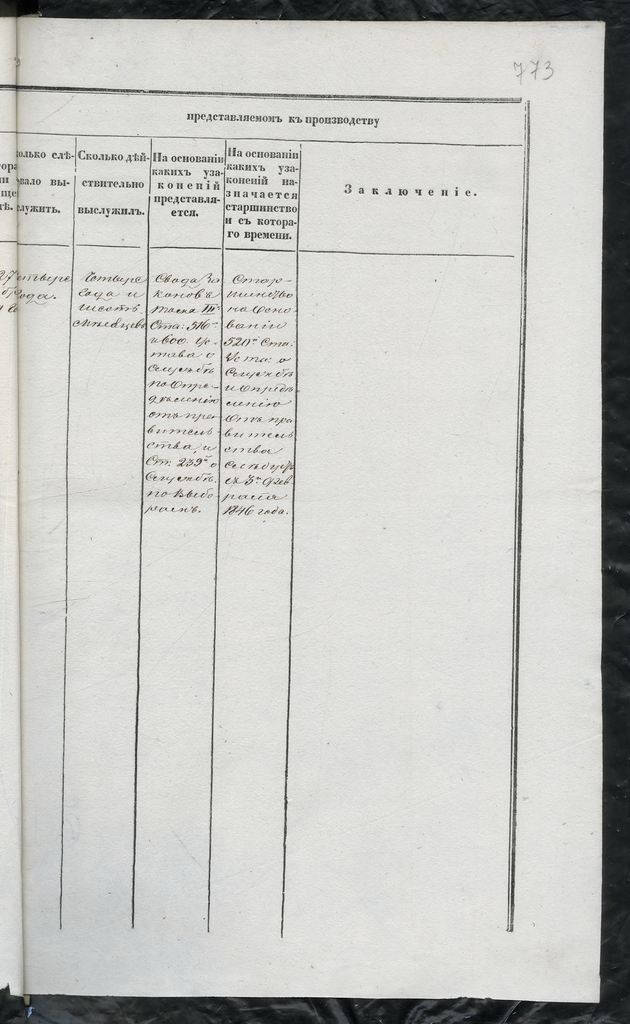 773
представляемомъ къ производству
колько слѣ-
вало вы-
служить.
Сколько дѣй-
ствительно
выслужилъ.
На основаніи
какихъ уза-
коненій
представля-
ется.
На основаніи
какихъ уза-
коненій на-
значается
старшинство
и съ котора-
го времени.
Заключеніе.
года.
Четыре
года и
шесть
мѣсяцевъ
Свода За
коновъ
тома III
Ста: 516
и 600. Ус-
тава о
Службѣ
по опре-
дѣленію
отъ пра-
витель-
ства, и
Ст. 239 о
Службѣ
по выбо
рамъ.
Стар-
шинство
на осно-
ваніи
520 Ста:
Уста: о
Службѣ
и опредѣ-
ленію
отъ пра
витель
ства
съ 3 Фев
раля
1846 года.